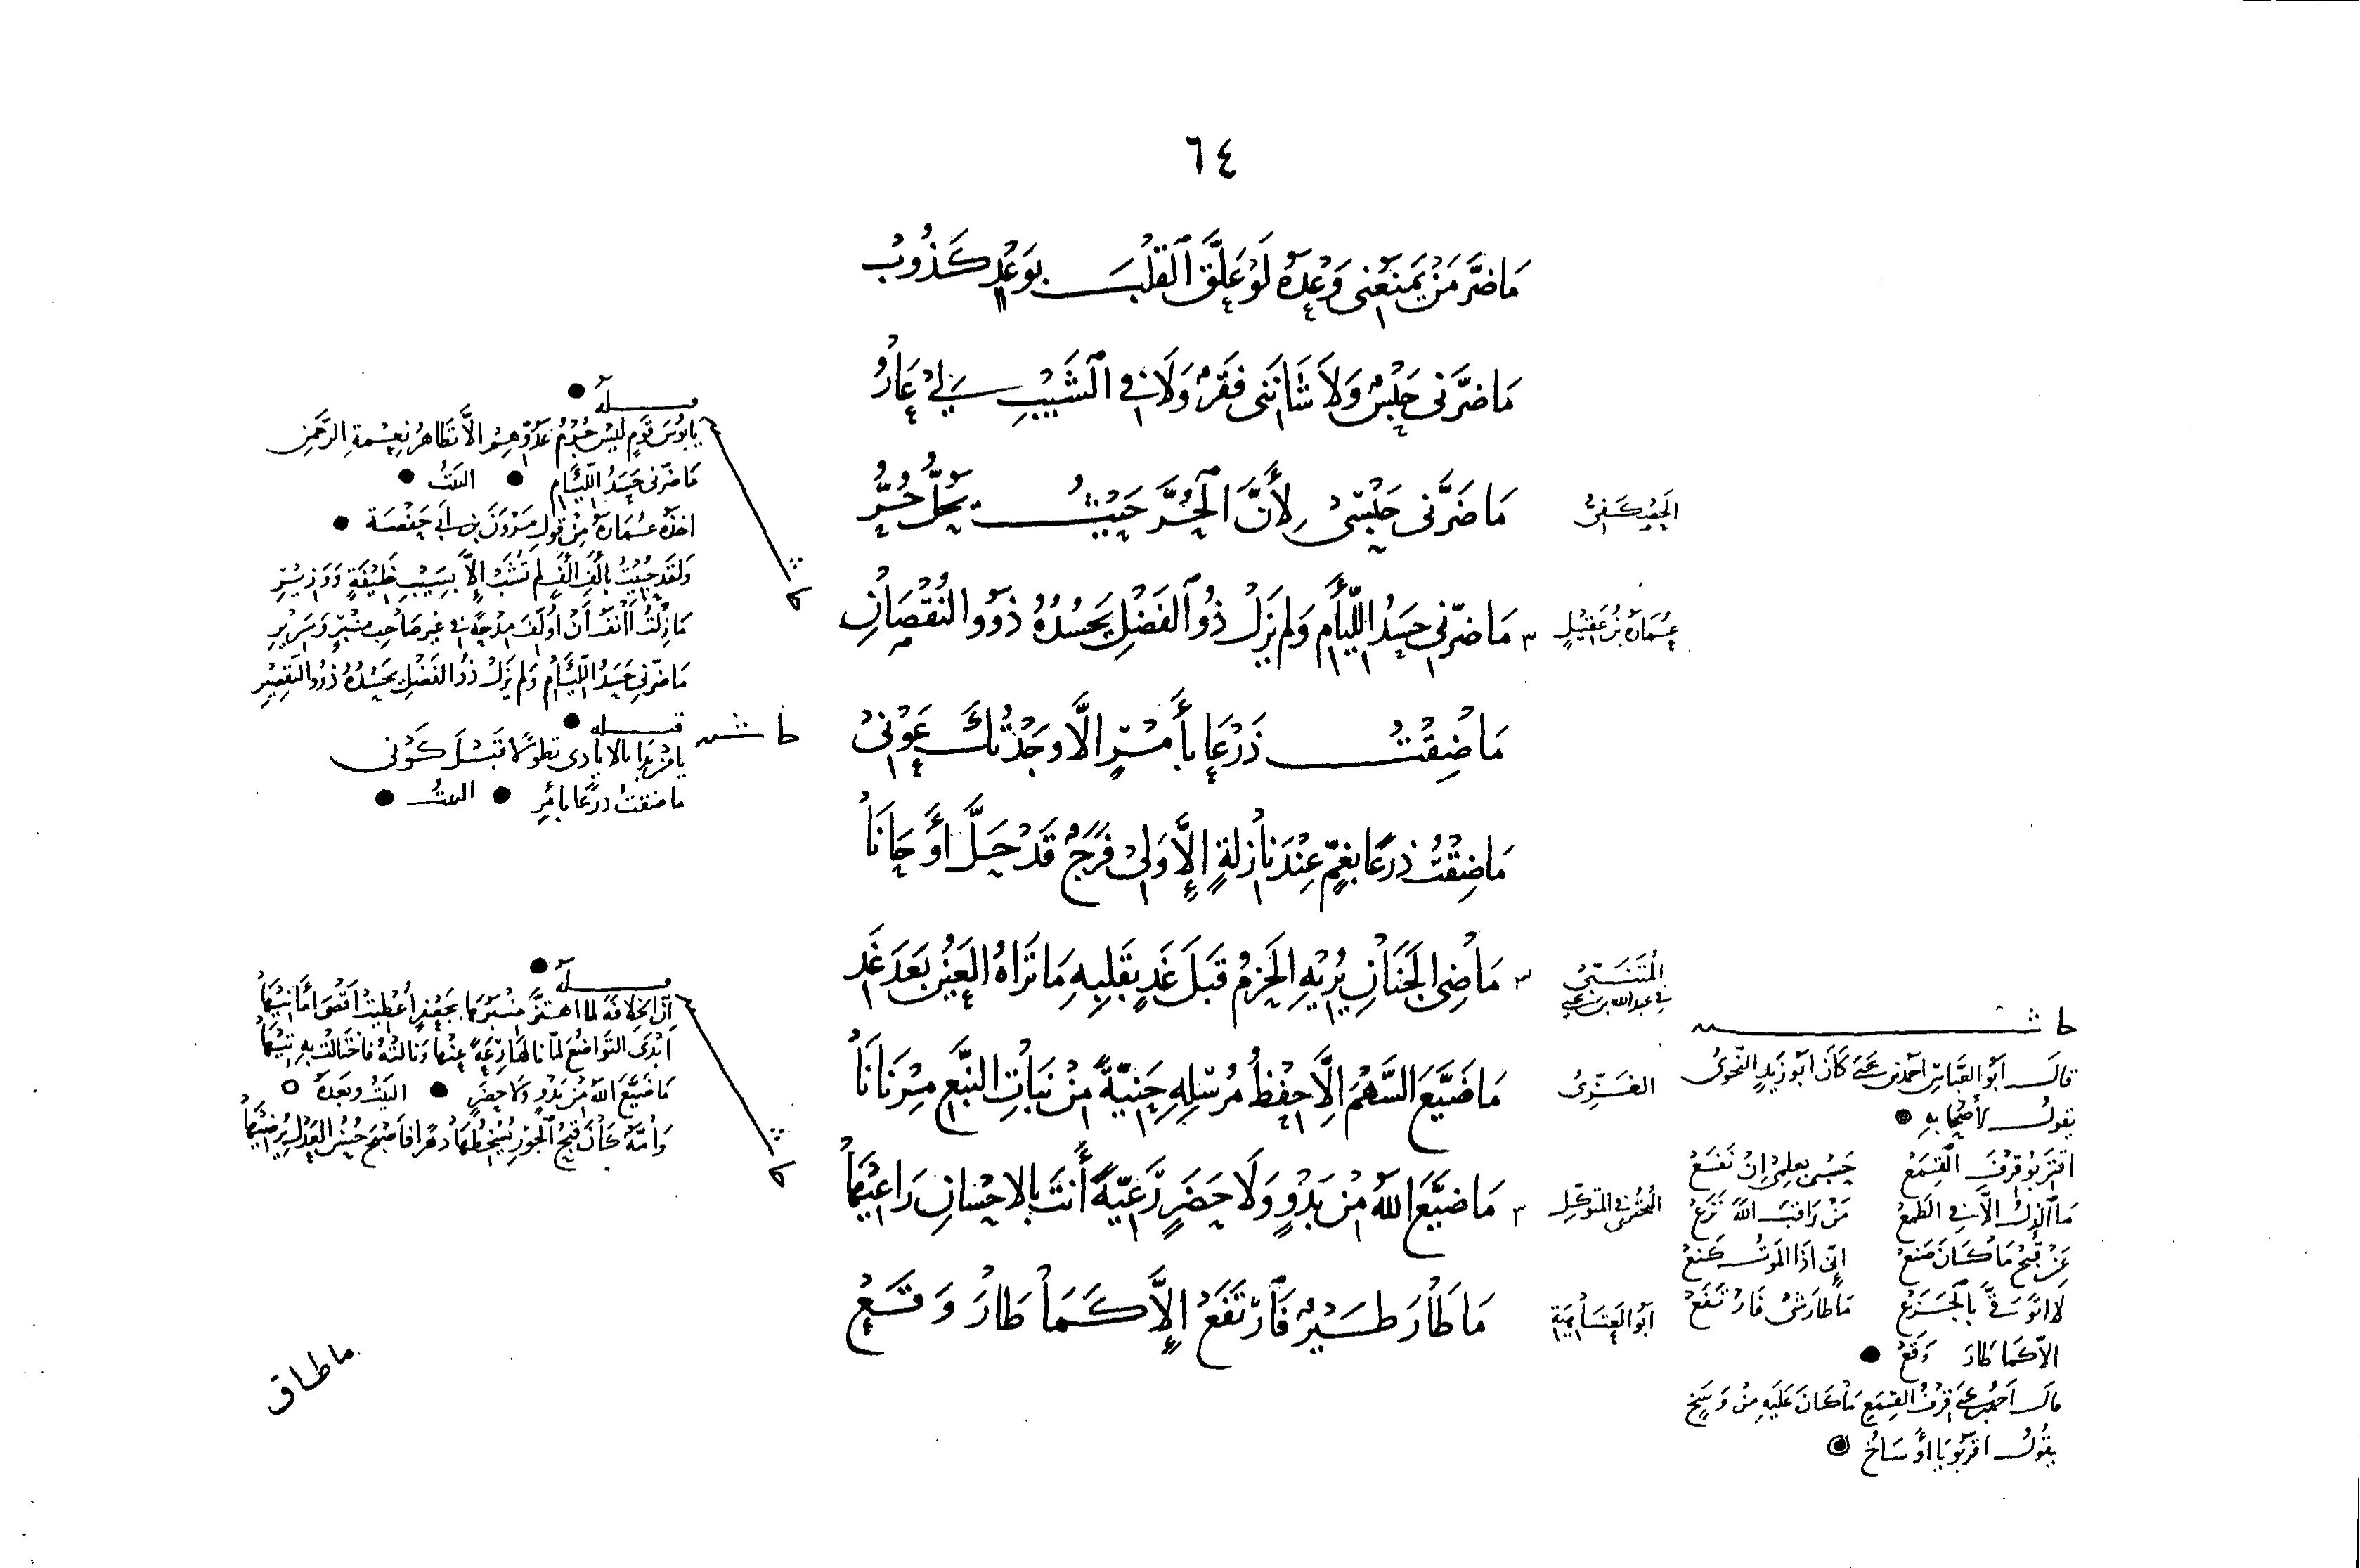 ٦٤
مَا ضَرَّ مَنْ يَمْنَعُنِي وَعْدَهُ لَوْ عَلَّقَ الْقَلْبَ بِوَعْدٍ كَذُوبْ
مَا ضَرَّنِي حَبْسٌ وَلَا شَانَنِي فَقْرٌ وَلَا فِي الشَّيْبِ لِي عَارُ
مَا ضَرَّنِي حَبْسِي لِأَنَّ الْحُرَّ حَيْثُ يَحُلُّ حُرُّ
عُمَارَةُ بْنُ عَقِيْلٍ
مَا ضَرَّنِي حَسَدُ اللِّئَامِ وَلَمْ يَزَلْ ذُو الْفَضْلِ يَحْسُدُهُ ذَوُو النُّقْصَانِ
مَا ضِقْتُ ذَرْعًا بِأَمْرٍ إِلَّا وَجَدْتُكَ عَوْنِي
مَا ضِقْتُ ذَرْعًا بِغَمٍّ عِنْدَ نَازِلَةٍ إِلَّا وَلِي فَرَجٌ قَدْ حَلَّ أَوْ حَانَا
الْمُتَنَبِّي
مَاضِي الْجَنَانِ يُرِيْهِ الْحَزْمُ قَبْلَ غَدٍ بِقَلْبِهِ مَا تَرَاهُ الْعَيْنُ بَعْدَ غَدِ
الْغَزِّيُّ
مَا ضَيَّعَ السَّهْمَ إِلَّا حِفْظُ مُرْسِلِهِ حَنِيَّةً مِنْ نَبَاتِ النَّبْعِ مِرْنَانَا
البحتري في المتوكل
مَا ضَيَّعَ اللهُ مِنْ بَدْوٍ وَلَا حَضَرٍ رَعِيَّةً أَنْتَ بِالْإِحْسَانِ رَاعِيْهَا
أَبُو الْعَتَاهِيَةِ
مَا طَارَ طَيْرٌ فَارْتَفَعْ إِلَّا كَمَا طَارَ وَقَعْ
قبله
يَا بُؤْسَ قَوْمٍ لَيْسَ جُرْمُ عَدُوِّهِمْ إِلَّا تَظَاهُرُ نِعْمَةِ الرَّحْمَنِ
مَا ضَرَّنِي حَسَدُ اللِّئَامِ البيت
أَخَذَهُ عُمَارَةُ مِنْ قَوْلِ مَرْوَانَ بْنِ أَبِي حَفْصَةَ
وَلَقَدْ حُبِيْتُ بِأَلْفِ أَلْفٍ لَمْ تُشَبْ إِلَّا بِسَيْبِ خَلِيْفَةٍ وَوَزِيْرِ
مَا زِلْتُ آنَفُ أَنْ أُؤَلِّفَ مِدْحَةً فِي غَيْرِ صَاحِبِ مِنْبَرٍ وَسَرِيْرِ
مَا ضَرَّنِي حَسَدُ اللِّئَامِ وَلَمْ يَزَلْ ذُو الْفَضْلِ يَحْسُدُهُ ذَوُو التَّقْصِيْرِ
قبله
بالأيادي تطولا قبل كوني
ما ضقت ذرعا بأمر البيت
قبله
إن الخلافة لما اهتز منبرها بجعفر أعطيت أقصى أمانيها
أبدى التواضع لما نالها دعة عنها ونالته فاختالت به تيها
ما ضيع الله من بدو ولا حضر البيت وبعده
وأمة كان قبح الجور يسخطها دهرا فأصبح حسن العدل يرضيها
قال أبو العباس أحمد بن يحيى كان أبو زيد النحوي
يقول لأصحابه
اقتربوا قرف القمع حسبي بعلمي إن نفع
ما الذل إلا في الطمع من راقب الله نزع
عن قبح ما كان صنع
ما طار شيء فارتفع
إلا كما طار وقع
قال أحمد بن يحيى قرف القمع ما كان عليه من وسخ
يقول اقربوا يا أوساخ
ما طاق